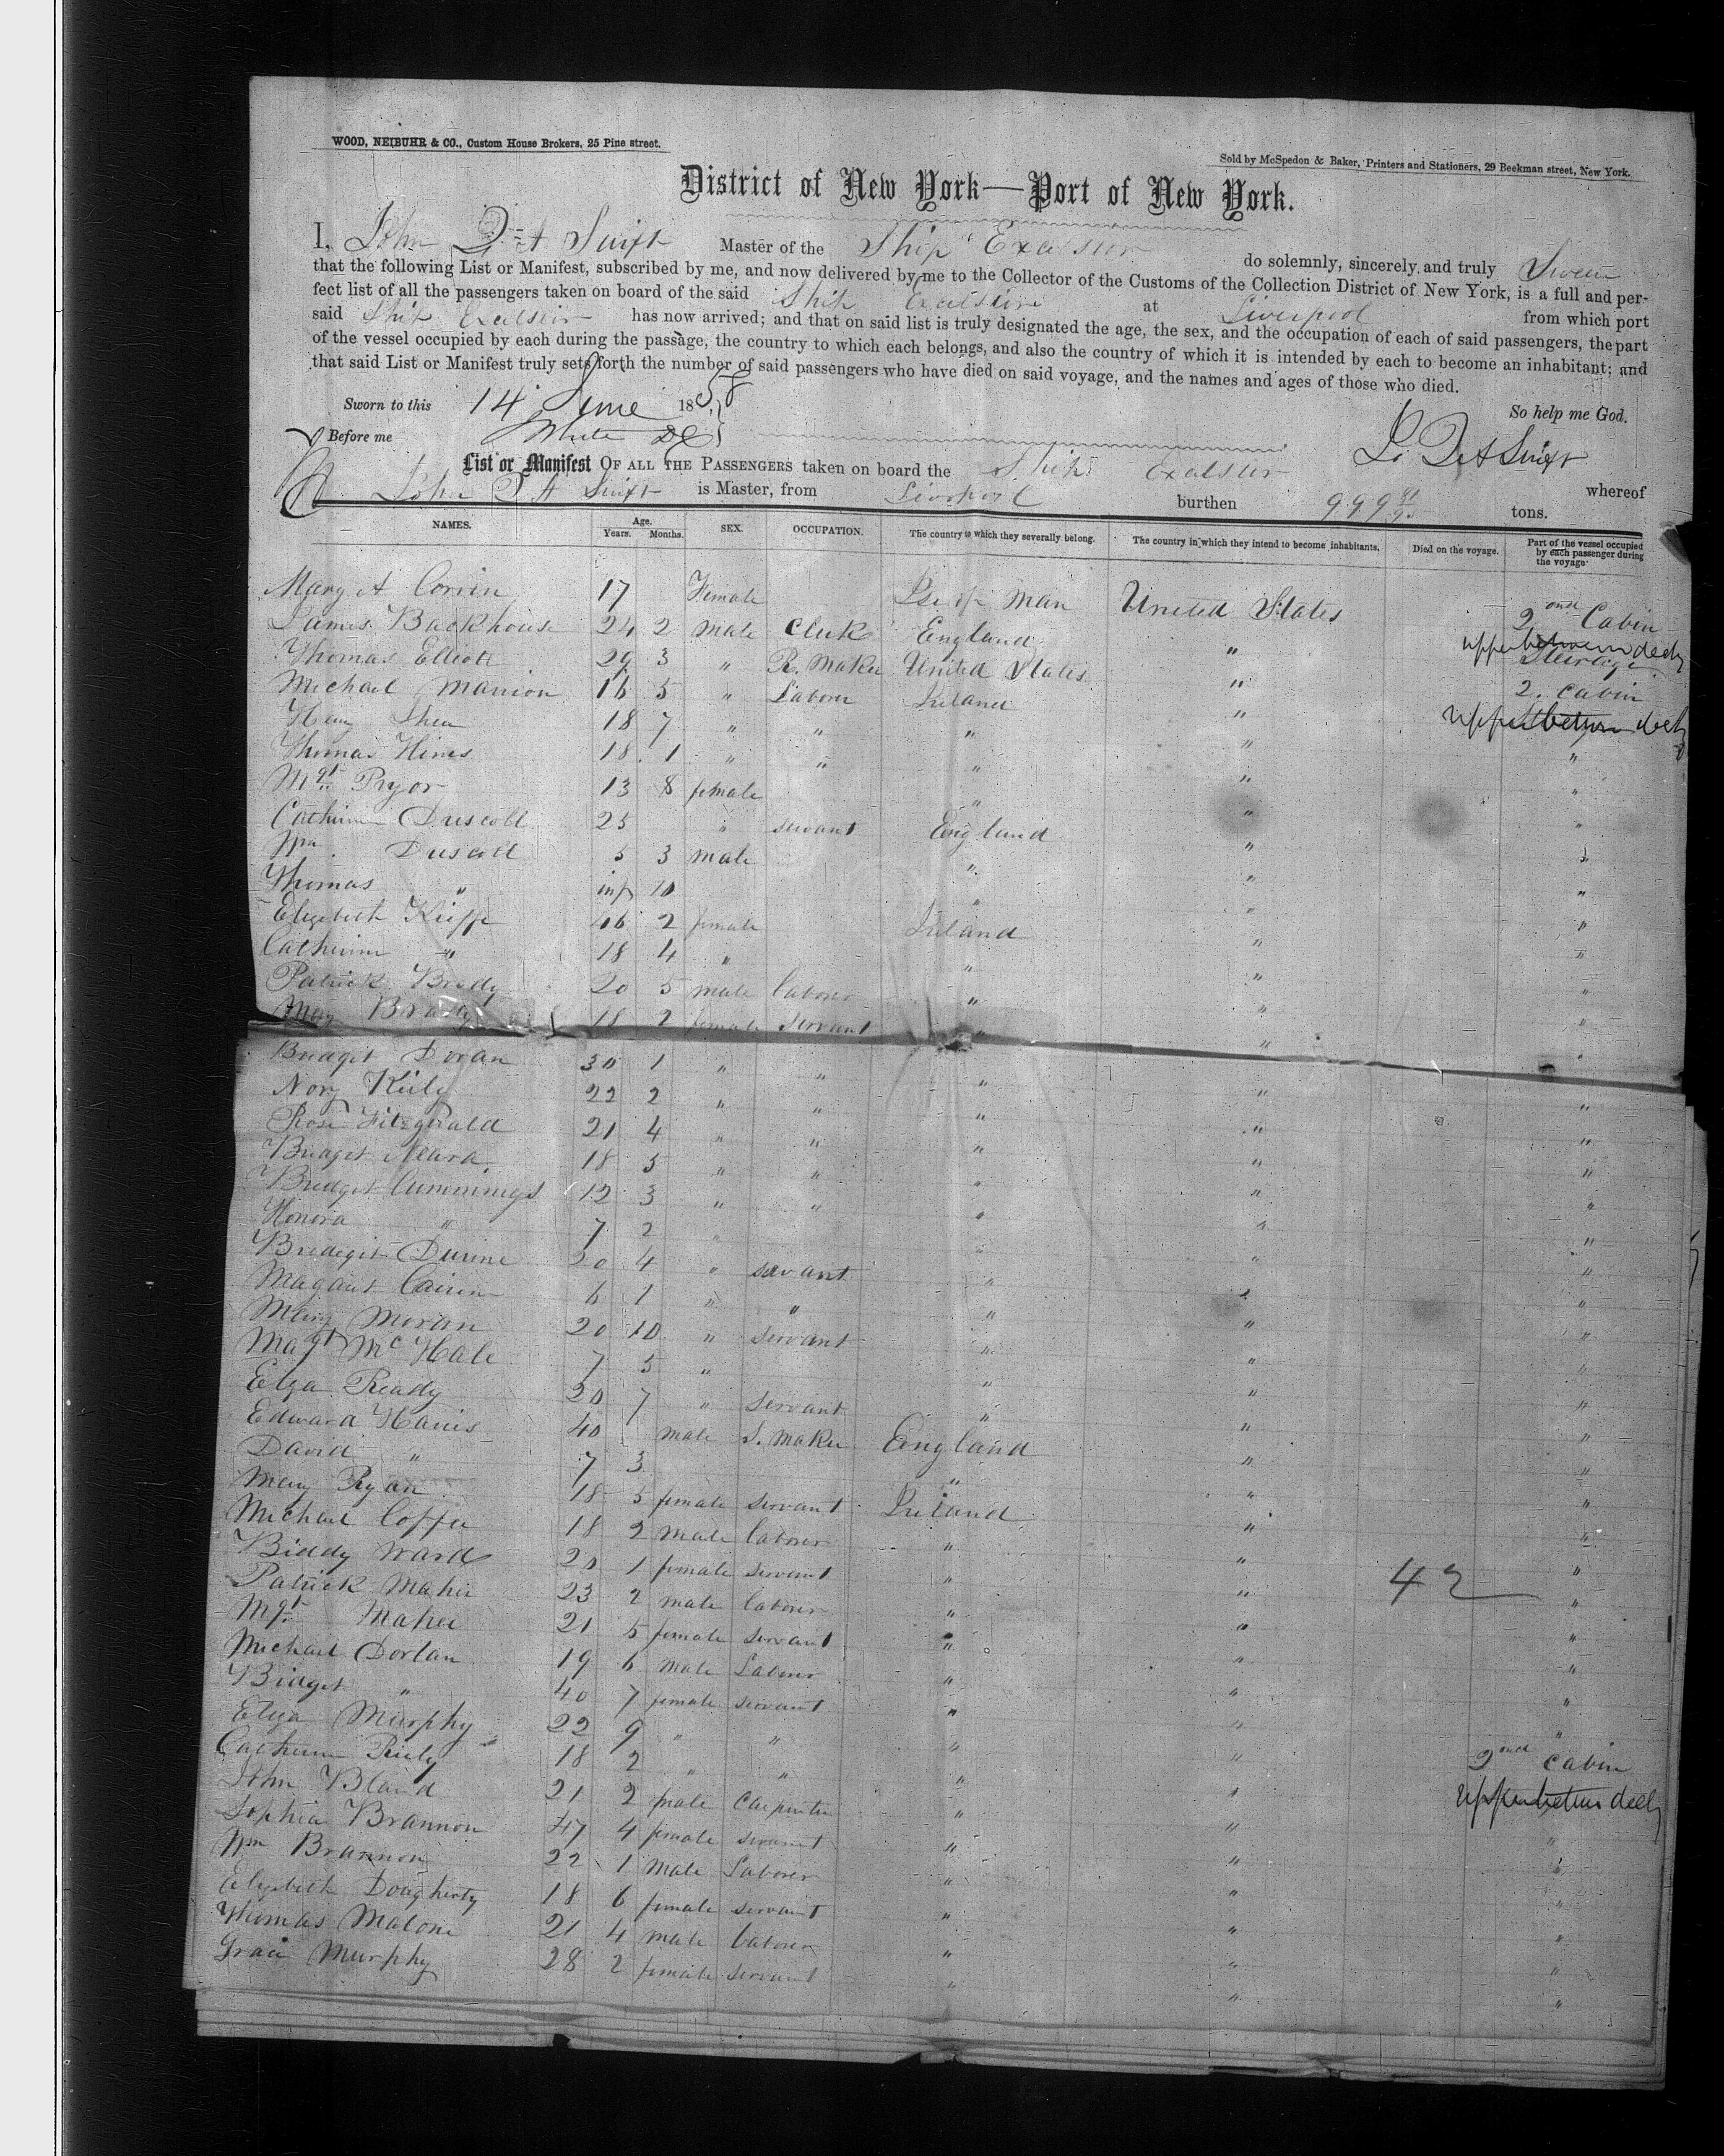 WOOD, NEIBUHR & CO., Custom House Brokers, 25 Pine street.
Sold by McSpedon & Baker, Printers and Stationers, 29 Beekman street, New York.
District of New York—Port of New York.
I, John Swift Master of the Ship Excelsior do solemnly, sincerely and truly Swear
that the following List or Manifest, subscribed by me, and now delivered by me to the Collector of the Customs of the Collection District of New York, is a full and per-
fect list of all the passengers taken on board of the said Ship Excelsior at Liverpool from which port
said Ship Excelsior has now arrived; and that on said list is truly designated the age, the sex, and the occupation of each of said passengers, the part
of the vessel occupied by each during the passage, the country to which each belongs, and also the country of which it is intended by each to become an inhabitant; and
that said List or Manifest truly sets forth the number of said passengers who have died on said voyage, and the names and ages of those who died.
Sworn to this 14 June 1858 So help me God.
Before me White Swift
List or Manifest OF ALL THE PASSENGERS taken on board the Ship Excelsior whereof
John Swift is Master, from Liverpool burthen 999 tons.
NAMES. Age. Years. Months. SEX. OCCUPATION. The country to which they severally belong. The country in which they intend to become inhabitants. Died on the voyage. Part of the vessel occupied by each passenger during the voyage
Mary A 17 Female Isle of Man United States 2ond Cabin
James Backhouse 24 2 male Clerk England " upper between deck
Thomas Elliott 29 3 " R. Maker United States " Steerage
Michael Manion 16 5 " Laborer Ireland " 2. Cabin
Henry Shea 18 7 " " " " upper between deck
Thomas 18 1 " " " " "
Mgt Pryor 13 8 female " " "
Catherine Driscoll 25 " servant England " "
Wm Driscoll 5 3 male " " "
Thomas " inf 10 " " "
Elizabeth Kieffe 46 2 female Ireland " "
Catherine " 18 4 " " " "
Patrick Brady 20 5 male laborer " " "
Mary Brady 18 2 female servant " " "
Bridget Doran 30 1 " " " " "
Nory Kiely 22 2 " " " " "
Rose Fitzgerald 21 4 " " " " "
Bridget Meara 18 5 " " " " "
Bridget Cummings 12 3 " " " " "
Honora " 7 2 " " " "
Bridget 20 4 " servant " " "
Magaret 6 1 " " " " "
Mary Moran 20 10 " servant " " "
Magt McHale 7 5 " " " "
Elza Ready 20 7 " servant " " "
Edward Harris 40 male S. Maker England " "
David " 7 3 " " "
Mary Ryan 18 5 female servant Ireland " "
Michael 18 2 male laborer " " "
Biddy Ward 20 1 female servant " " "
42
Patrick Maher 23 2 male laborer " " "
Mgt Maher 21 5 female servant " " "
Michael Dorlan 19 6 male Laborer " " "
Bridget " 40 7 female servant " " "
Eliza Murphy 22 9 " " " " "
Catherine Riely 18 2 " " " " 2nd Cabin
John Bland 21 2 male Carpenter " " upper between deck
Sophia Brannon 47 4 female servant " " "
Wm Brannon 22 1 male Laborer " " "
Elizabeth Dougherty 18 6 female servant " " "
Thomas Malone 21 4 male laborer " " "
Grace Murphy 28 2 female servant " " "